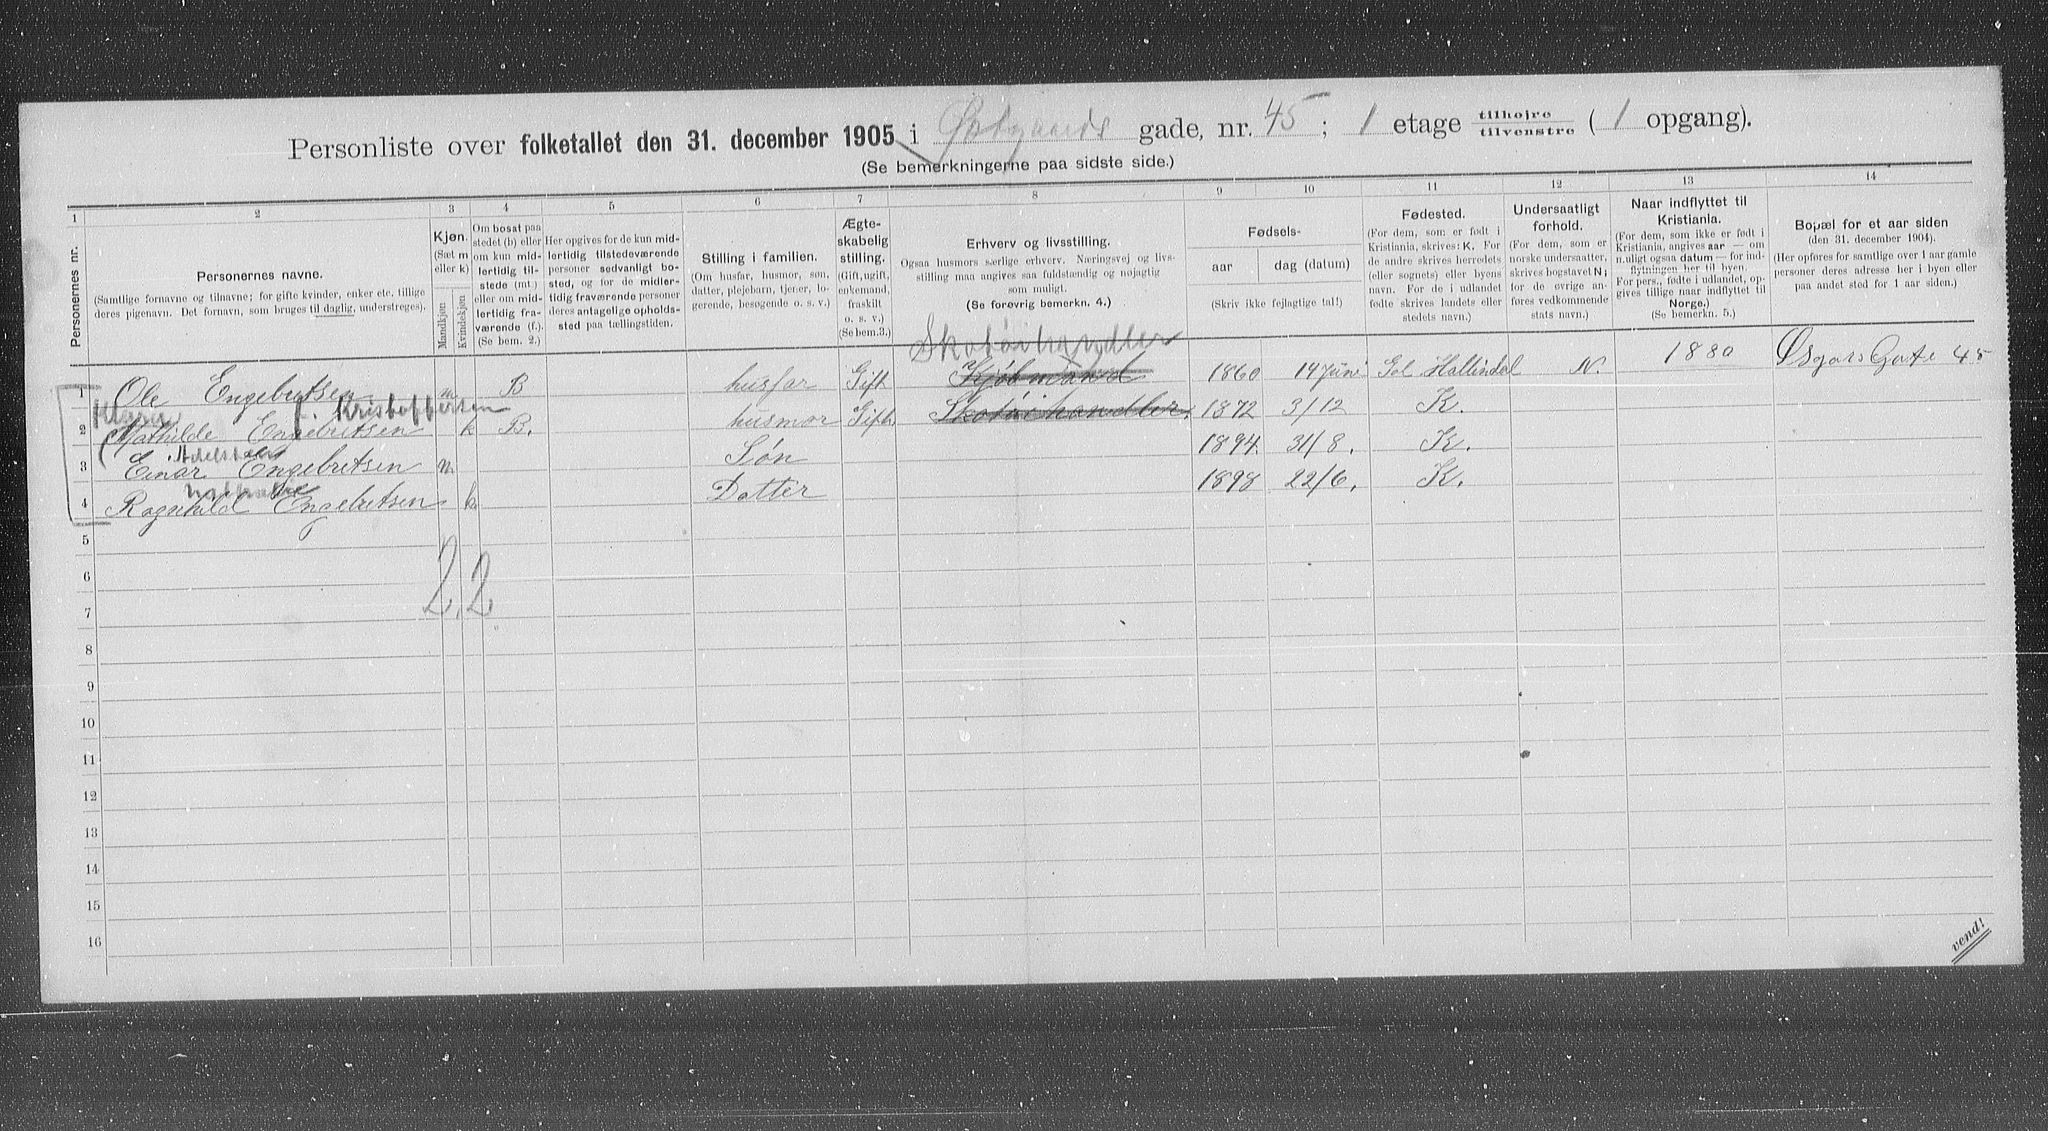 Personliste over folketallet den 31. december 1905 i Østgaards gade, nr. 45 ; 1 etage tilhøjre tilvenstre ( 1 opgang).
(Se bemerkningerne paa sidste side.)
1 2 3 4 5 6 7 8 9 10 11 12 13 14
Personernes nr.
Personernes navne.
(Samtlige fornavne og tilnavne; for gifte kvinder, enker etc. tillige deres pigenavn. Det fornavn, som bruges til daglig, understreges).
Kjøn.
(Sæt m eller k)
Mandkjøn
Kvindekjøn
Om bosat paa stedet (b) eller om kun midlertidig tilstede (mt.) eller om midlertidig fraværende (f.).
(Se bem. 2.)
Her opgives for de kun midlertidig tilstedeværende personer sedvanligt bosted, og for de midlertidig fraværende personer deres antagelige opholdssted paa tællingstiden.
Stilling i familien.
(Om husfar, husmor, søn, datter, plejebarn, tjener, logerende, besøgende o. s. v.)
Ægteskabelig stilling.
(Gift, ugift, enkemand, fraskilt o. s. v.)
(Se bem. 3.)
Erhverv og livsstilling.
Ogsaa husmors særlige erhverv. Næringsvej og livsstilling maa angives saa fuldstændig og nøjagtig som muligt.
(Se forøvrig bemerkn. 4.)
Fødsels-
aar
dag (datum)
(Skriv ikke fejlagtige tal!)
Fødested.
(For dem, som er født i Kristiania, skrives: K. For de andre skrives herredets (eller sognets) eller byens navn. For de i udlandet fødte skrives landets eller stedets navn.)
Undersaatligt forhold.
(For dem, som er norske undersaatter, skrives bogstavet N; for de øvrige anføres vedkommende stats navn.)
Naar indflyttet til Kristiania.
(For dem, som ikke er født i Kristiania, angives aar — om n.uligt ogsaa datum — for indflytningen her til byen. For pers., fødte i udlandet, opgives tillige naar indflyttet til Norge.)
(Se bemerkn. 5.)
Bopæl for et aar siden
(den 31. december 1904).
(Her opføres for samtlige over 1 aar gamle personer deres adresse her i byen eller paa andet sted for 1 aar siden.)
Skotøihandler
1 Ole Engebretsen m B husfar Gift Kjøbmand 1860 14 Juni Gol Hallindal N. 1880 Øsgars Gate 45
f. Kristoffersen
2 Mathilde Engebritsen k B. husmor Gift Skotøihandler. 1872 3/12 K.
3 Einar Engebretsen m Søn 1894. 31/8. K.
4 Ragnhild Engebretsen k. Datter 1898 22/6. K.
5
2. 2
6
7
8
9
10
11
12
13
14
15
16
vend!